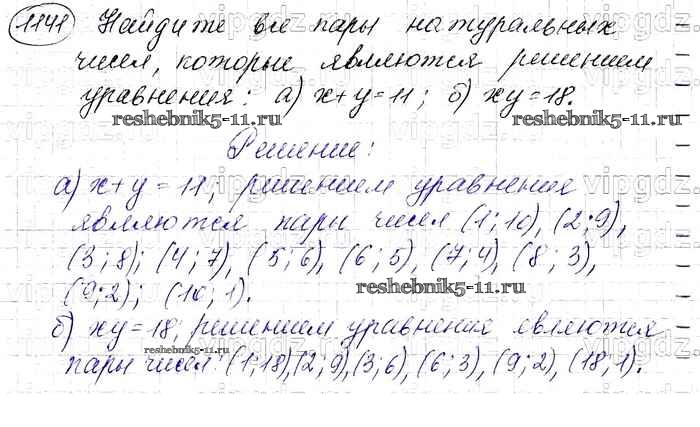 1141 Найдите все пары натуральных
чисел, которые являются решением
уравнения: а) x+y=11; б) xy=18.
reshebnik5-11.ru
Решение:
а) x+y=11, решением уравнения
являются пары чисел (1;10), (2;9),
(3;8); (4;7), (5;6), (6;5), (7;4), (8;3),
(9;2); (10;1).
reshebnik5-11.ru
б) xy=18, решением уравнения являются
reshebnik5-11.ru
пары чисел: (1;18),(2;9),(3;6), (6;3), (9;2), (18;1).